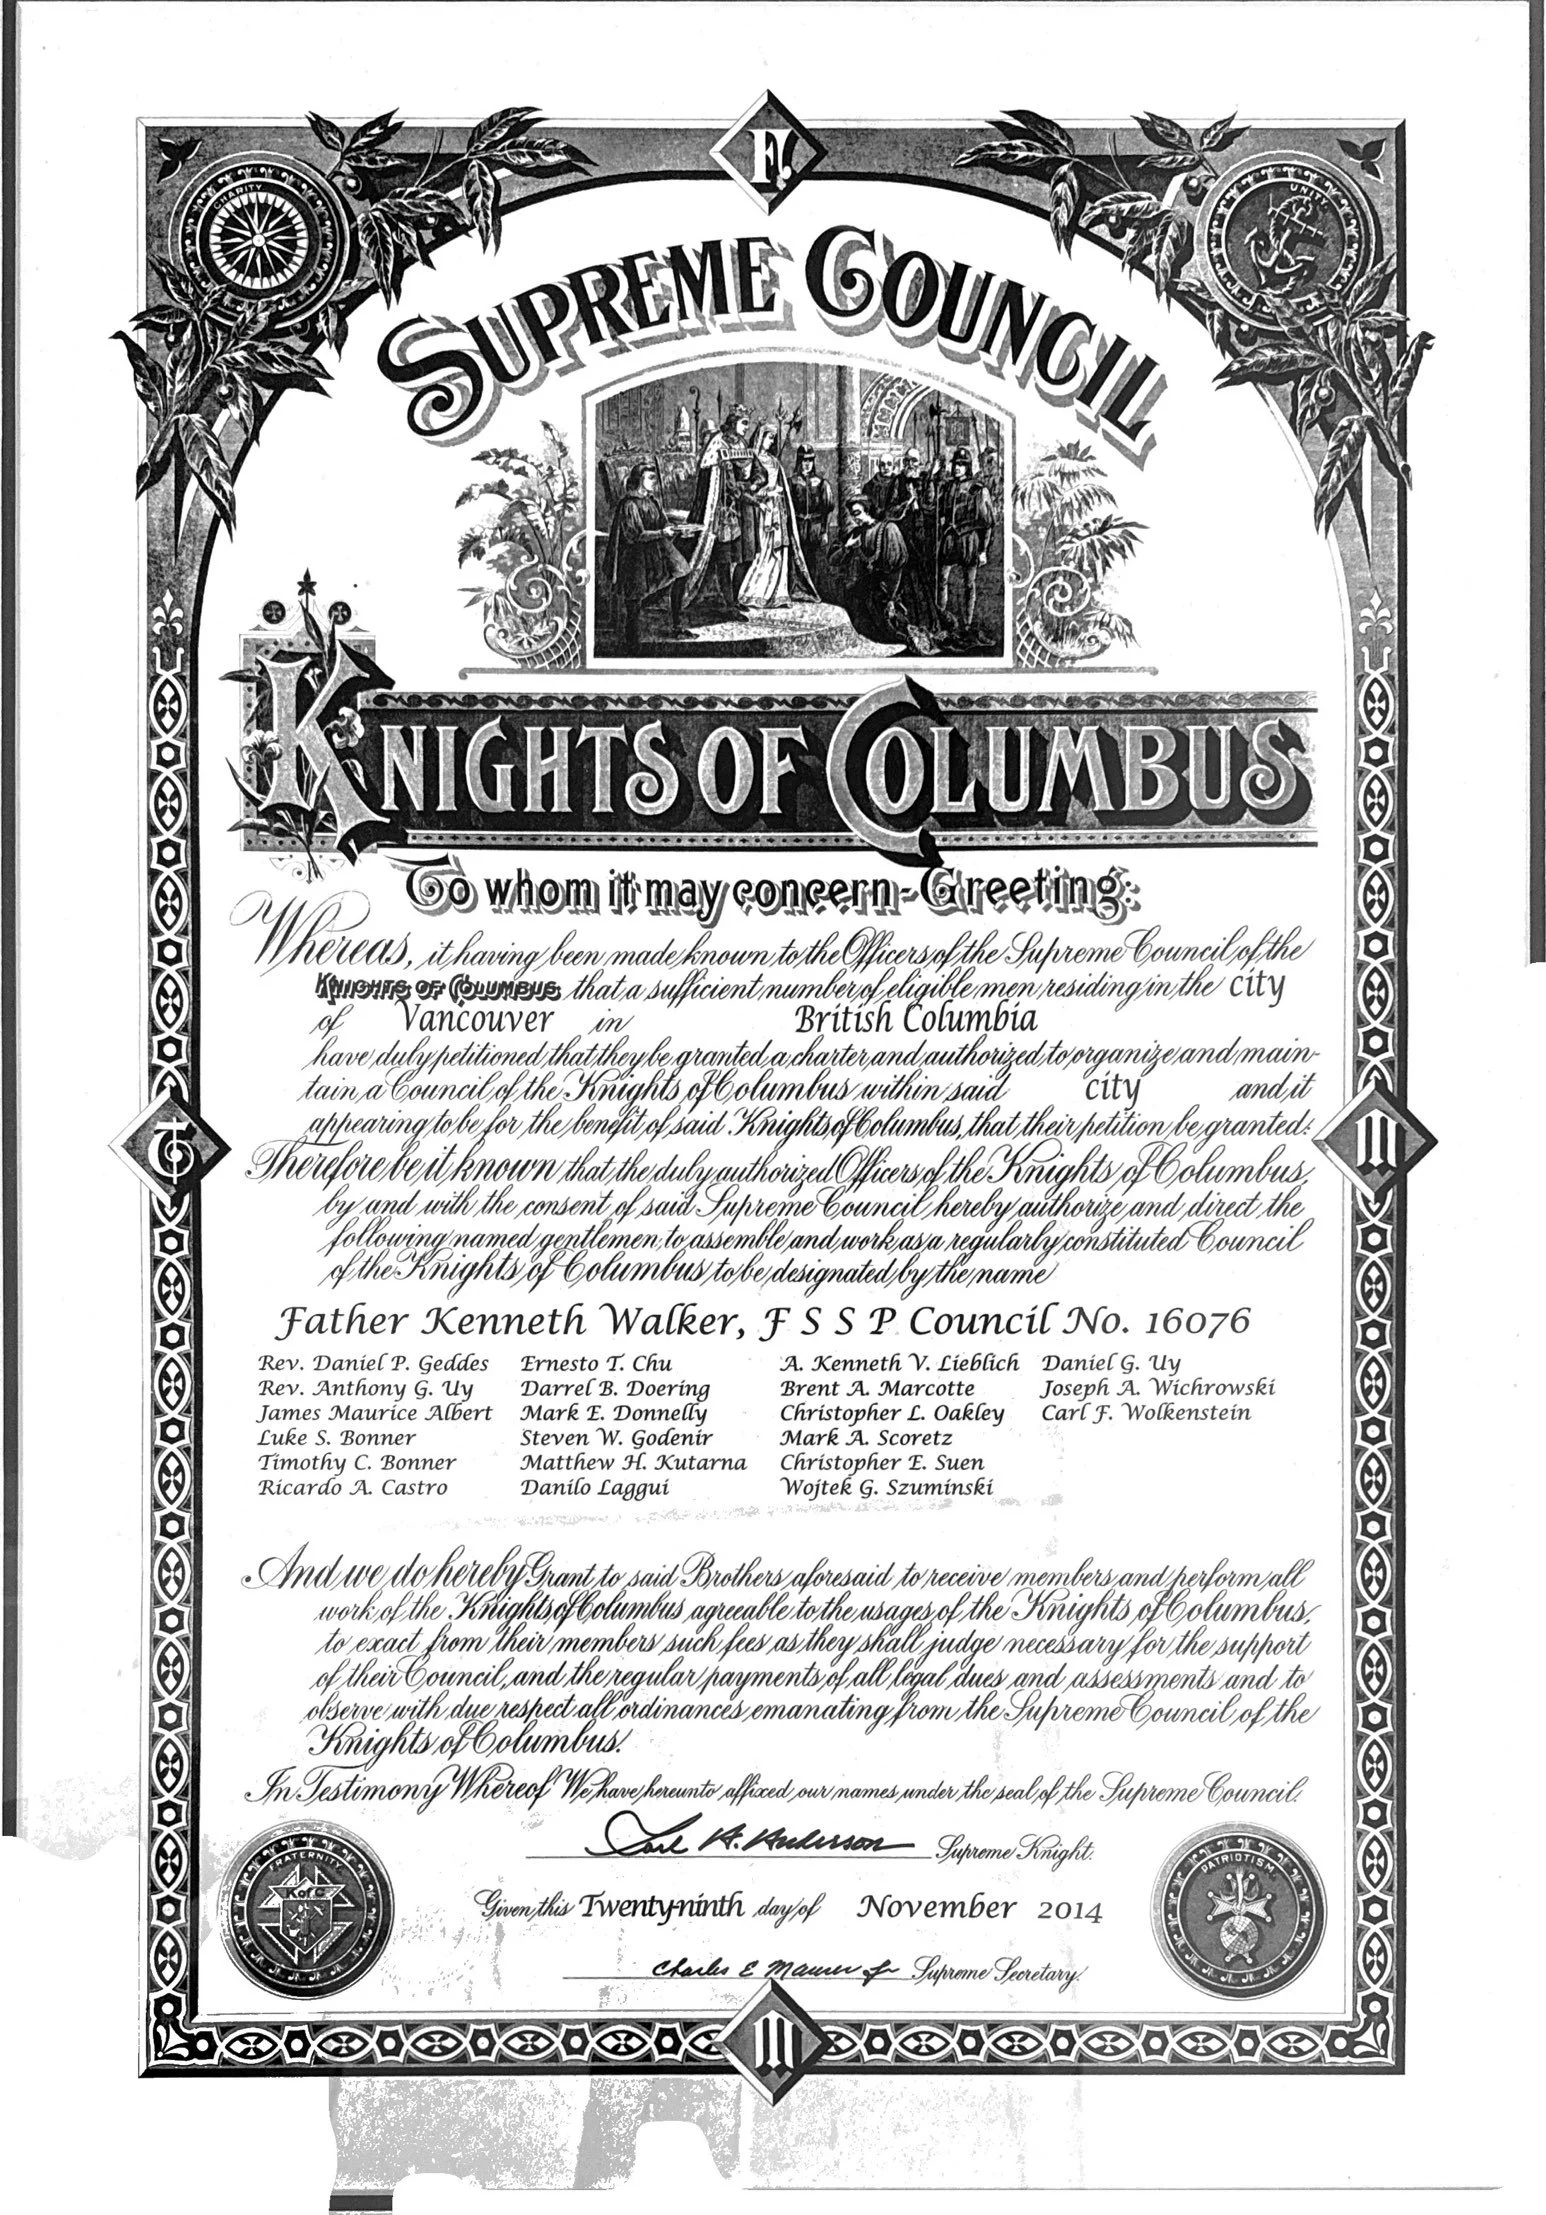 CHARITY
UNITY
SUPREME COUNCIL
KNIGHTS OF COLUMBUS
To whom it may concern - Greeting:
Whereas, it having been made known to the Officers of the Supreme Council of the
KNIGHTS OF COLUMBUS that a sufficient number of eligible men residing in the city
of Vancouver in British Columbia
have duly petitioned that they be granted a charter and authorized to organize and main-
tain a Council of the Knights of Columbus within said city and it
appearing to be for the benefit of said Knights of Columbus, that their petition be granted:
Therefore be it known that the duly authorized Officers of the Knights of Columbus,
by and with the consent of said Supreme Council hereby authorize and direct the
following named gentlemen, to assemble and work as a regularly constituted Council
of the Knights of Columbus to be designated by the name
Father Kenneth Walker, F S S P Council No. 16076
Rev. Daniel P. Geddes Ernesto T. Chu A. Kenneth V. Lieblich Daniel G. Uy
Rev. Anthony G. Uy Darrel B. Doering Brent A. Marcotte Joseph A. Wichrowski
James Maurice Albert Mark E. Donnelly Christopher L. Oakley Carl F. Wolkenstein
Luke S. Bonner Steven W. Godenir Mark A. Scoretz
Timothy C. Bonner Matthew H. Kutarna Christopher E. Suen
Ricardo A. Castro Danilo Laggui Wojtek G. Szuminski
And we do hereby Grant to said Brothers aforesaid to receive members and perform all
work of the Knights of Columbus agreeable to the usages of the Knights of Columbus,
to exact from their members such fees as they shall judge necessary for the support
of their Council, and the regular payments of all legal dues and assessments and to
observe with due respect all ordinances emanating from the Supreme Council of the
Knights of Columbus.
In Testimony Whereof We have hereunto affixed our names under the seal of the Supreme Council.
Carl A. Anderson Supreme Knight.
Given this Twenty-ninth day of November 2014
Charles E Maurer Jr Supreme Secretary.
FRATERNITY
K of C
PATRIOTISM